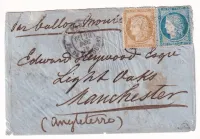 Par ballon monté
Edward Heywood Esqre
Light Oaks
Manchester
(Angleterre)